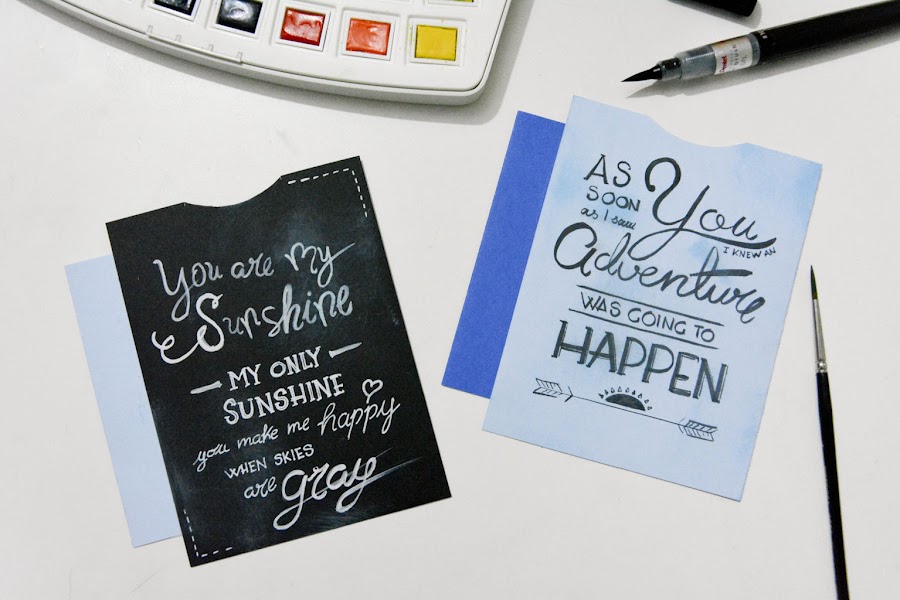 You are my
Sunshine
MY ONLY
SUNSHINE
you make me happy
WHEN SKIES
are gray
AS You
SOON
as I saw
I KNEW AN
Adventure
WAS GOING TO
HAPPEN